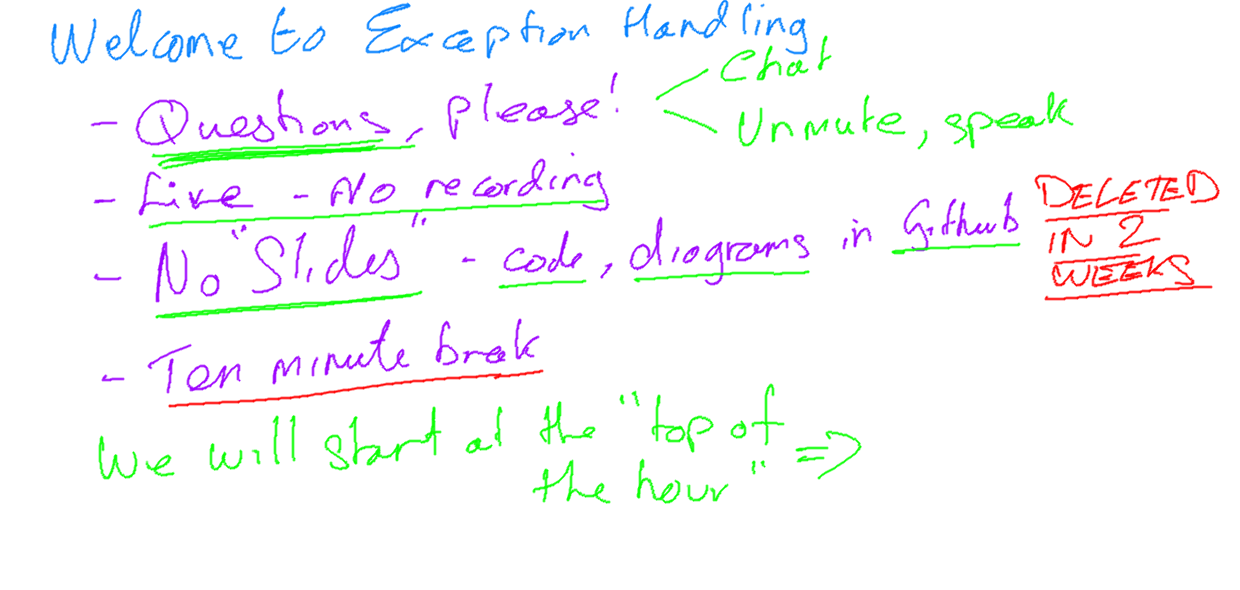 Welcome to Exception Handling
- Questions, please!
Chat
Unmute, speak
- Live - No recording
- No "Slides" - code, diagrams in Github
DELETED
IN 2
WEEKS
- Ten minute break
We will start at the "top of
the hour" =>